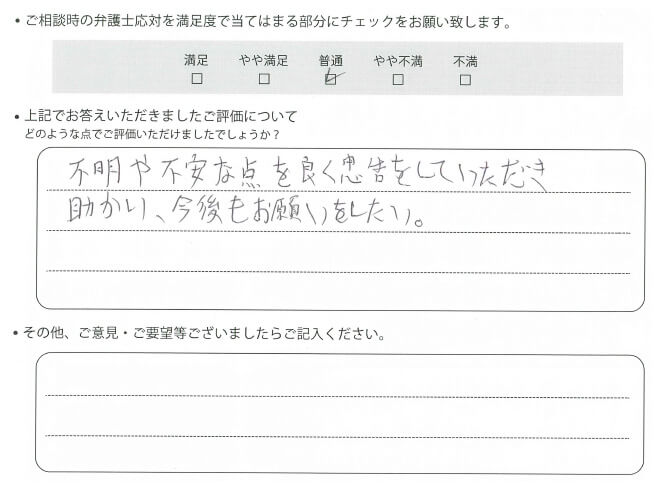 • ご相談時の弁護士応対を満足度で当てはまる部分にチェックをお願い致します。
満足 やや満足 普通 やや不満 不満
□ □ ☑ □ □
• 上記でお答えいただきましたご評価について
どのような点でご評価いただけましたでしょうか？
不明や不安な点を良く忠告をしていっただき
助かり、今後もお願いをしたい。
• その他、ご意見・ご要望等ございましたらご記入ください。